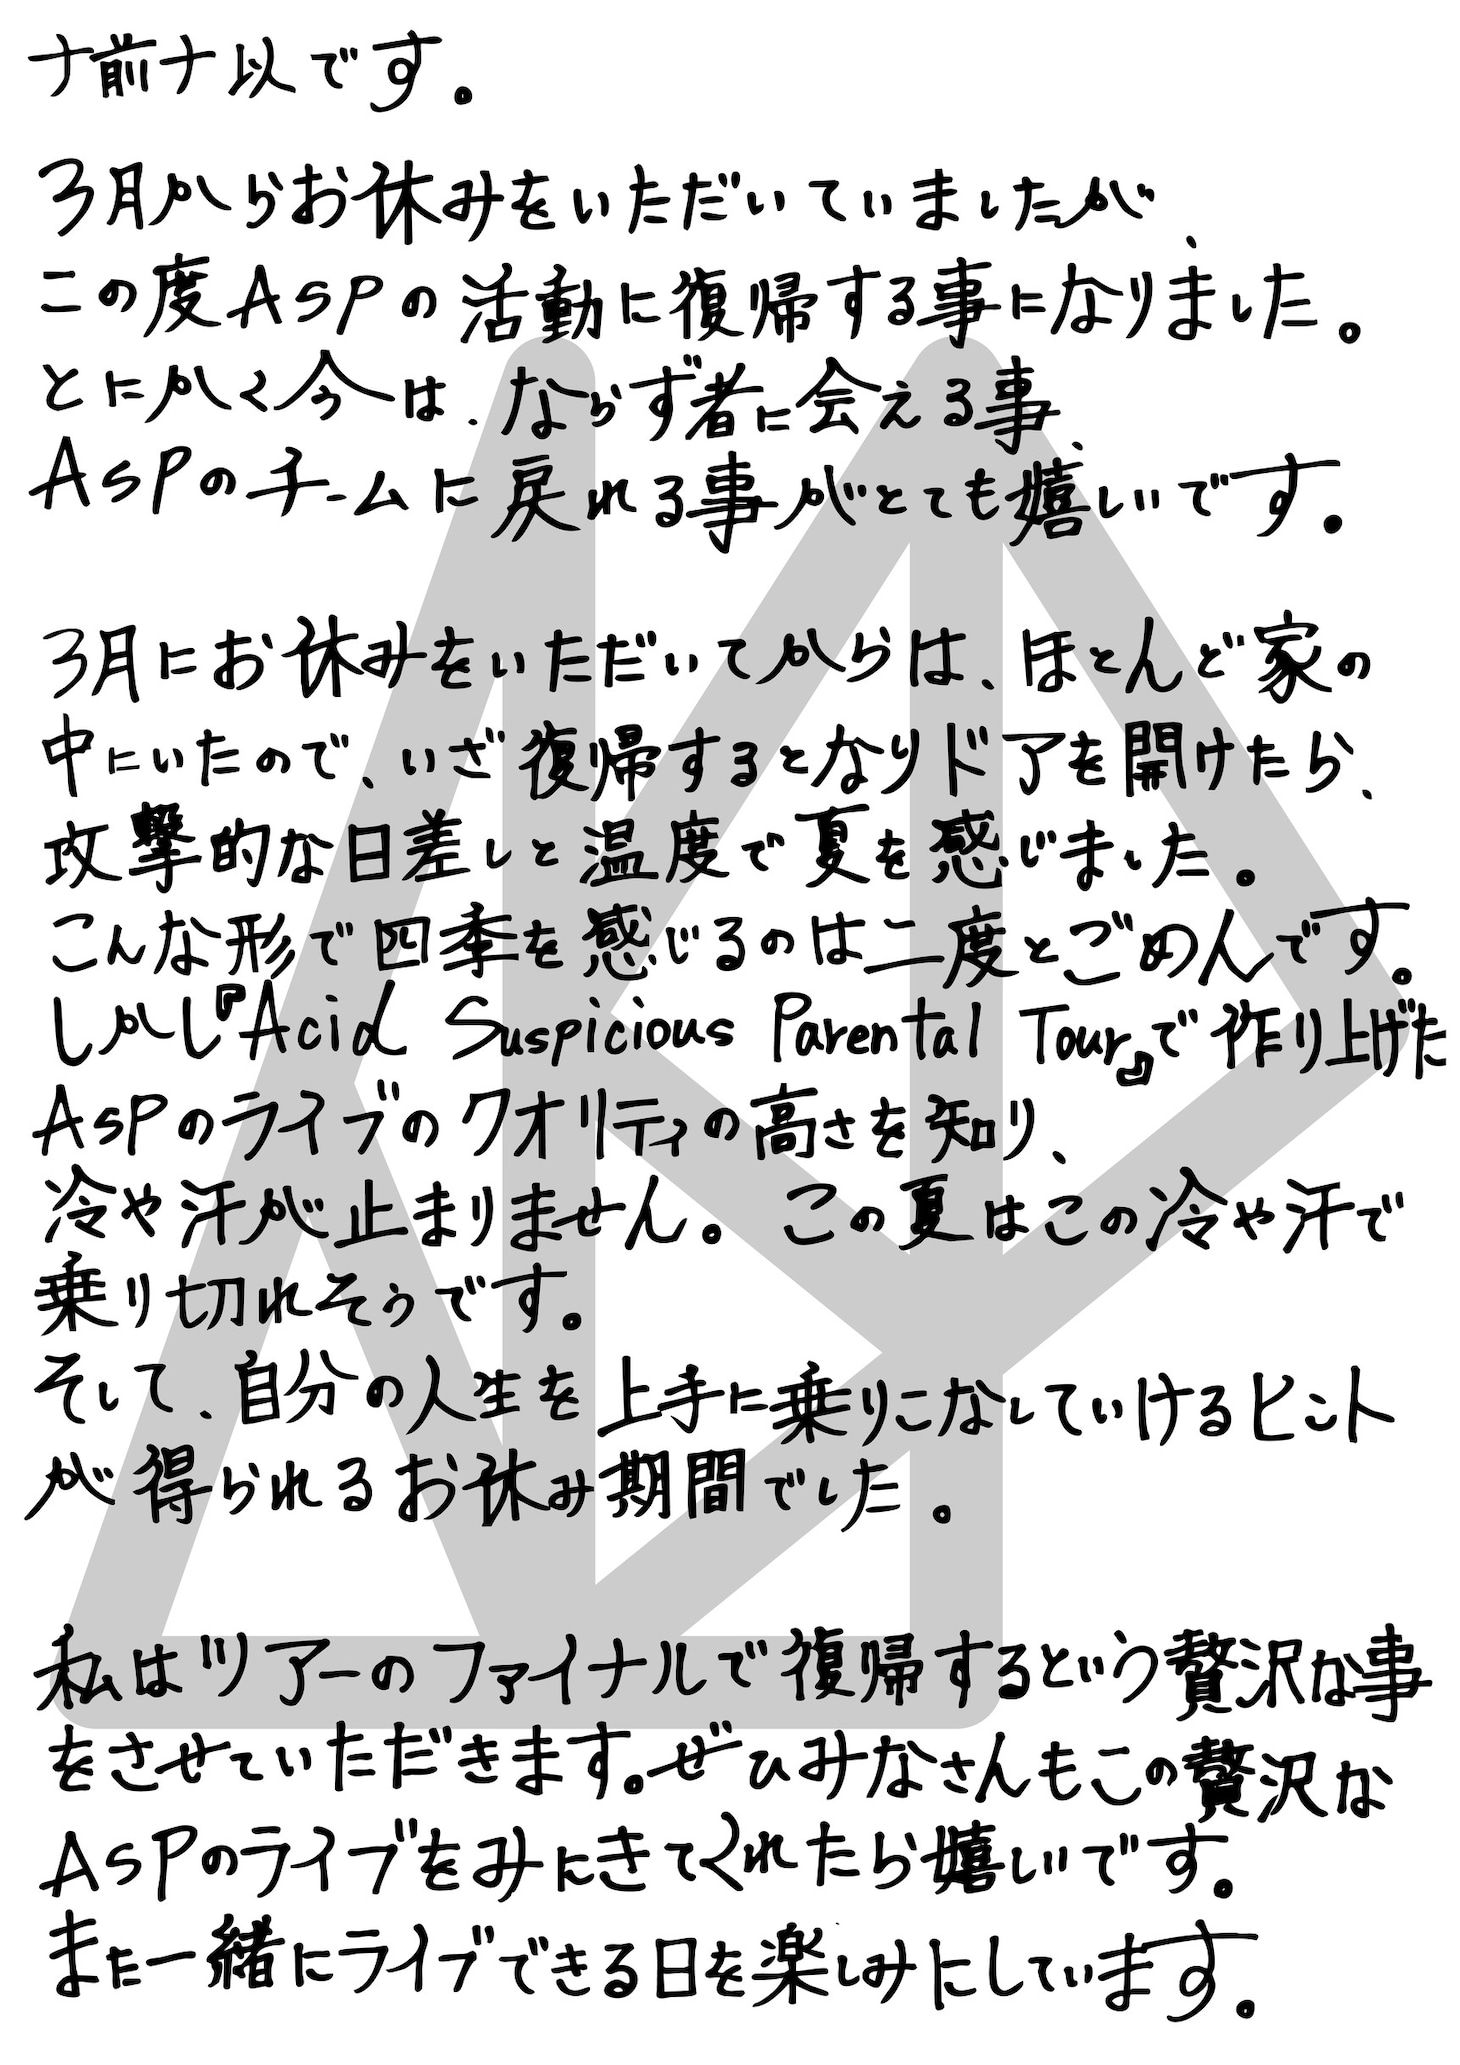 ナ前ナ以です。
3月からお休みをいただいていましたが、
この度ASPの活動に復帰する事になりました。
とにかく今は、ならず者に会える事、
ASPのチームに戻れる事がとても嬉しいです。
3月にお休みをいただいてからは、ほとんど家の
中にいたので、いざ復帰するとなりドアを開けたら、
攻撃的な日差しと温度で夏を感じました。
こんな形で四季を感じるのは二度とごめんです。
しかし『Acid Suspicious Parental Tour』で作り上げた
ASPのライブのクオリティの高さを知り、
冷や汗が止まりません。この夏はこの冷や汗で
乗り切れそうです。
そして、自分の人生を上手に乗りこなしていけるヒント
が得られるお休み期間でした。
私はツアーのファイナルで復帰するという贅沢な事
をさせていただきます。ぜひみなさんもこの贅沢な
ASPのライブをみにきてくれたら嬉しいです。
また一緒にライブできる日を楽しみにしています。